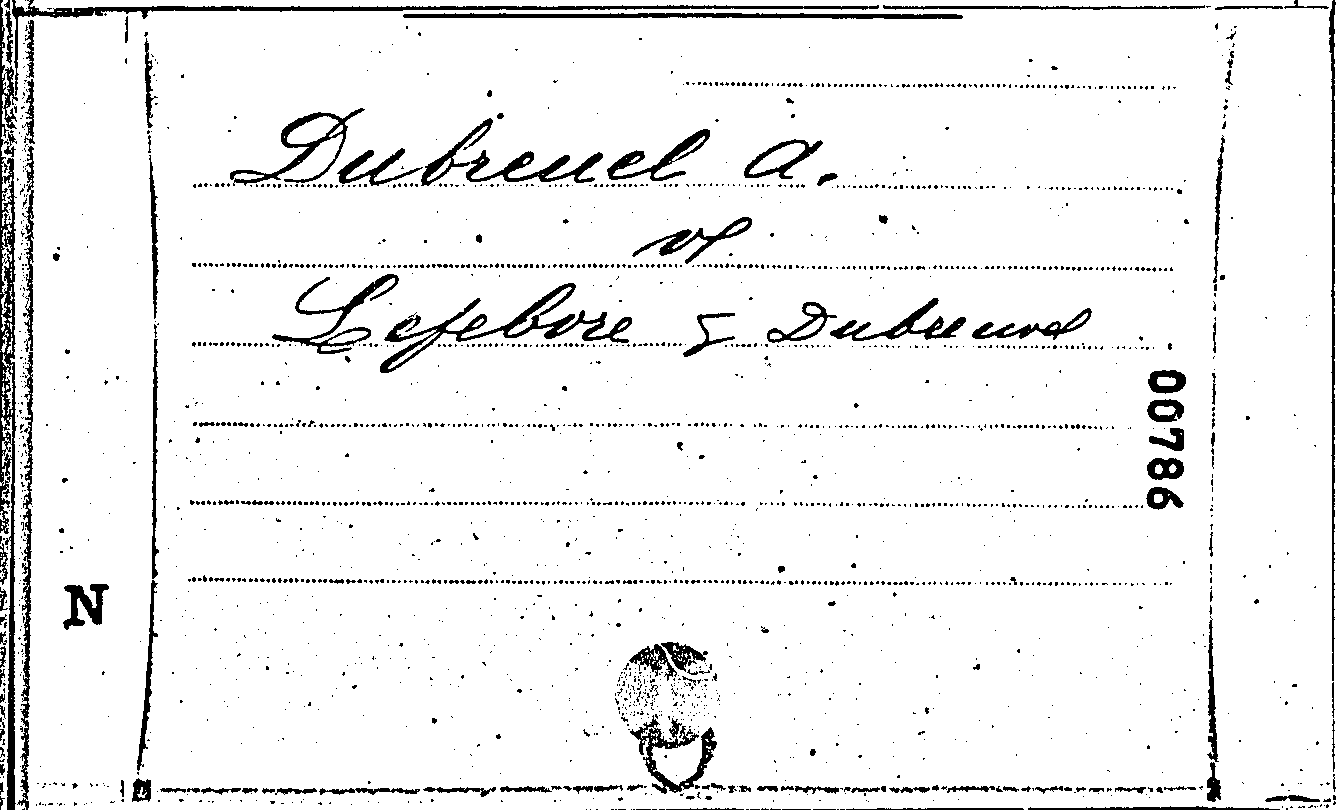 Dubreuel A.
of
Lefebore & Dubreuel
00786
N